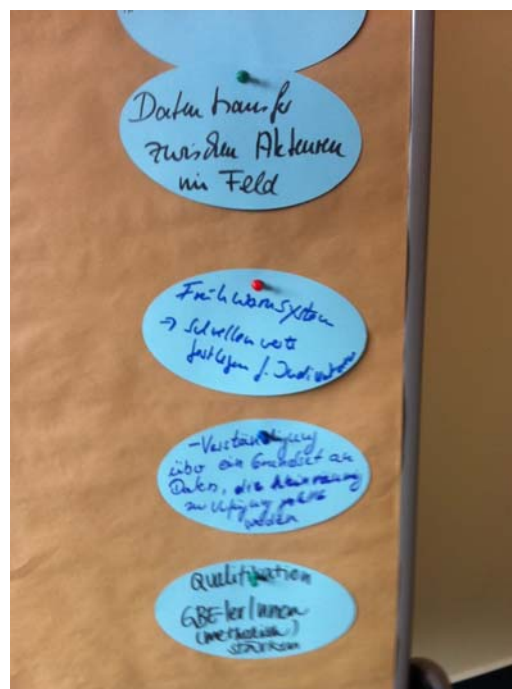 Datentransfer
zwischen Akteuren
im Feld
Frühwarnsystem
→ Schwellenwerte
festlegen f. Indikatoren
- Verständigung
über ein Grundset an
Daten, die
zur Verfügung gestellt
werden
Qualifikation
GBE-ler/innen
(methodisch)
stärken